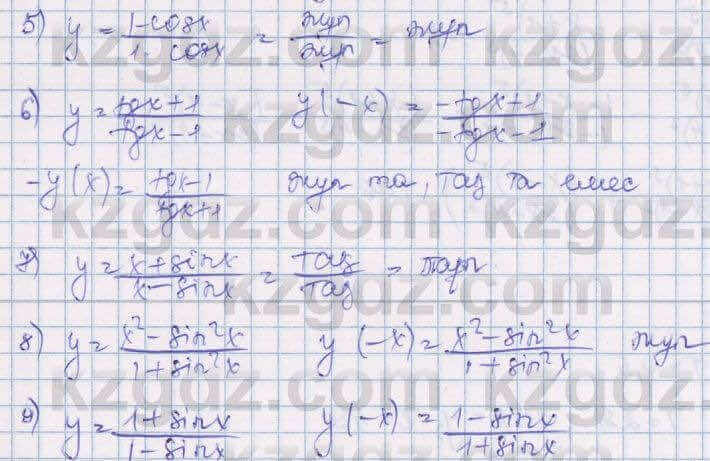 5) y = 1-cosx / 1 cosx = жуп / жуп = жуп
6) y = tgx+1 / tgx-1 y(-x) = -tgx+1 / -tgx-1
-y(x) = tgx-1 / tgx+1 жуп та, таз та емес
7) y = x+sinx / x-sinx = таз / таз =
8) y = x²-sin²x / 1+sin²x y(-x) = x²-sin²x / 1+sin²x жуп
9) y = 1+sinx / 1-sinx y(-x) = 1-sinx / 1+sinx
kzgdz.com